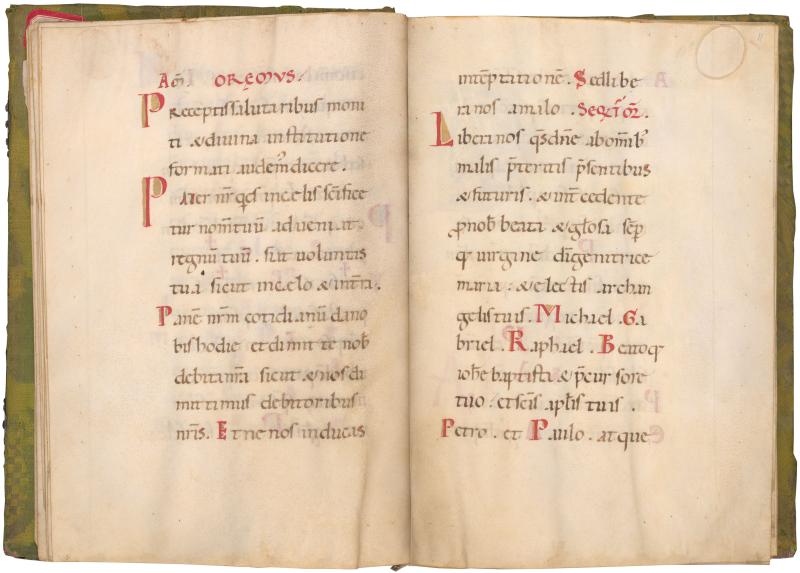 Am̄. OREMUS.
Preceptis salutaribus moni
ti & divina institutione
formati audem̄ dicere.
Pater nr̄ qui es in celis sc̄ifice
tur nom̄ tuū adveniat
regnū tuū. fiat voluntas
tua sicut in celo & in tr̄a.
Panē nr̄m cotidianū da no
bis hodie et dimitte nob̄
debita nr̄a sicut & nos di
mittimus debitoribus
nr̄is. Et ne nos inducas
in tēptationē. Sed libe
ra nos a malo. Seqit̄ or̄.
Libera nos qs̄ dn̄e ab om̄ib;
malis p̄teritis p̄sentibus
& futuris. & int̄cedente
p nob̄ beata & gl̄osa sēp
q virgine dī genitrice
maria: & electis archan
gelis tuis. Michael. Ga
briel. Raphael. Beatoq
ioh̄e baptista & p̄cursore
tuo: et sc̄is apl̄is tuis.
Petro. et Paulo. atque